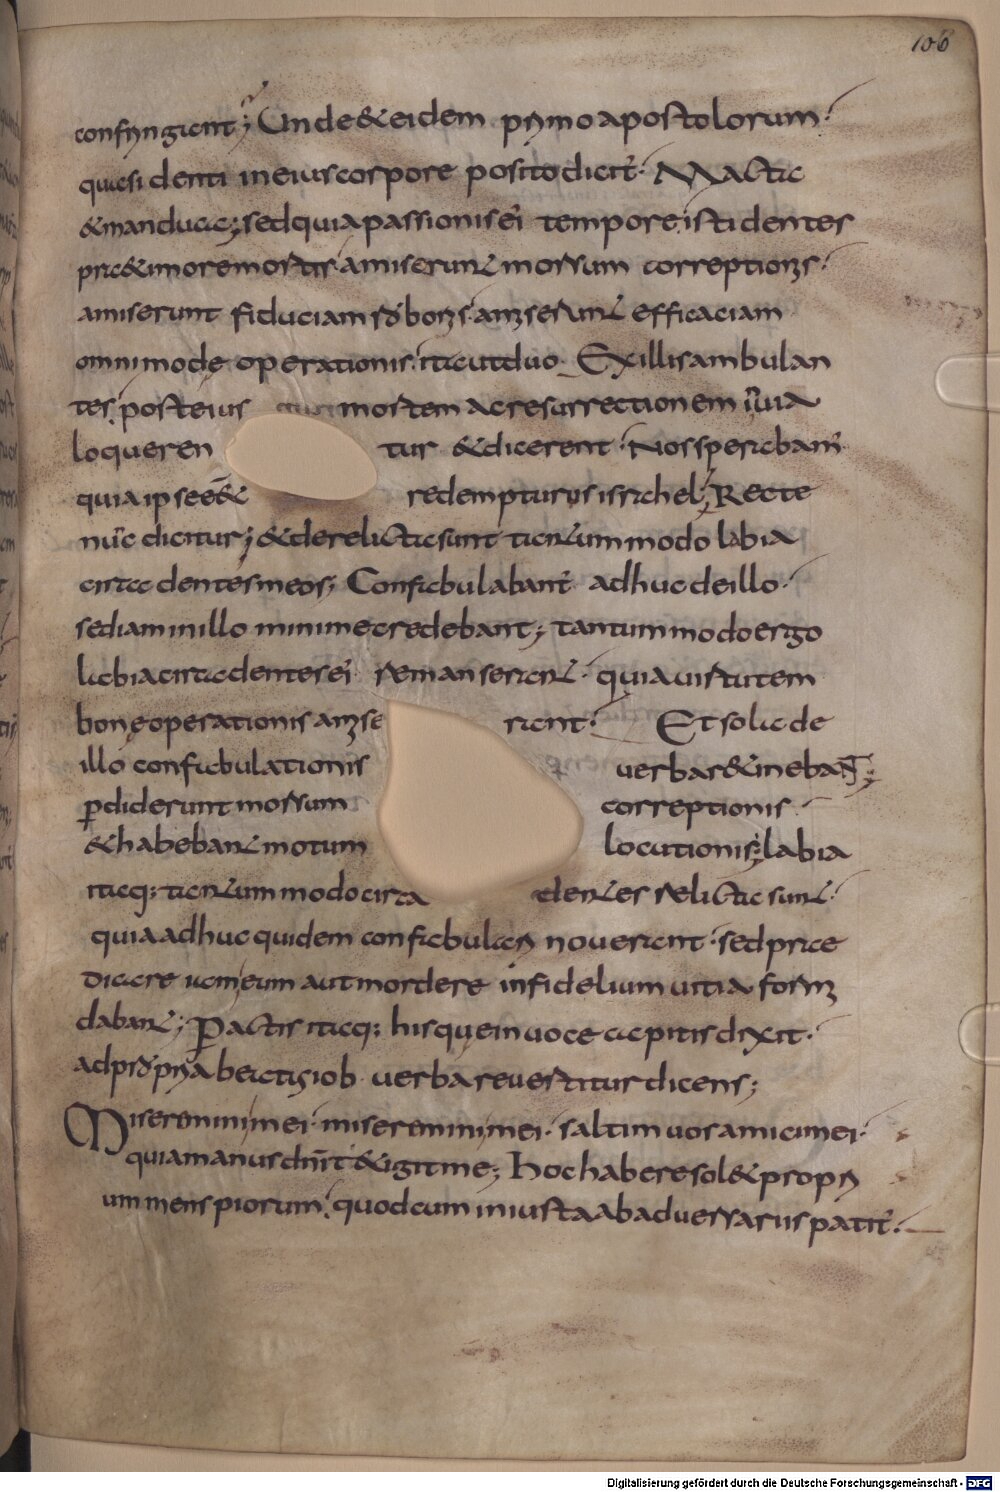 106
confringant; Unde & eidem primo apostolorum·
quasi denti in eius corpore posito dicit͛· Macta
& manduca; sed quia passionis ei͛ tempore isti dentes
prae & timore mortis amiserunt morsum correptionis·
amiserunt fiduciam sui͛ boris· amiserunt efficaciam
omnimodę operationis· ita ut duo Ex illis ambulan
tes, post eius mortem ac resurrectionem in uia
loqueren tur & dicerent· Nos sperabam͛
quia ipse eē& redempturus israhel; Recte
nūc dicitur; & derelicta sunt tantummodo labia
circa dentes meos; Confabulabant͛ adhuc de illo·
sed iam in illo minime credebant; tantummodo ergo
labia circa dentes ei͛ remanserant· quia uirtutem
bonę operationis amise rant· Et sola de
illo confabulationis uerba r&inebant;
p̱diderunt morsum correptionis
& habebant motum locutionis; labia
itaq: tantummodo circa dentes relicta sunt·
quia adhuc quidem confabulari nouerant· sed prae
dicare iam eum aut mordere infidelium uitia formi
dabant; Peractis itaq: his quę in uoce capitis dixit·
ad p͛pria beati iob uerba reuertitur dicens;
Miseremini mei· miseremini mei· saltim uos amici mei·
quia manus dnī t&igit me; Hoc habere sol& propri
um mens piorum· quod cum iniusta ab aduersariis patit͛·
Digitalisierung gefördert durch die Deutsche Forschungsgemeinschaft - DFG